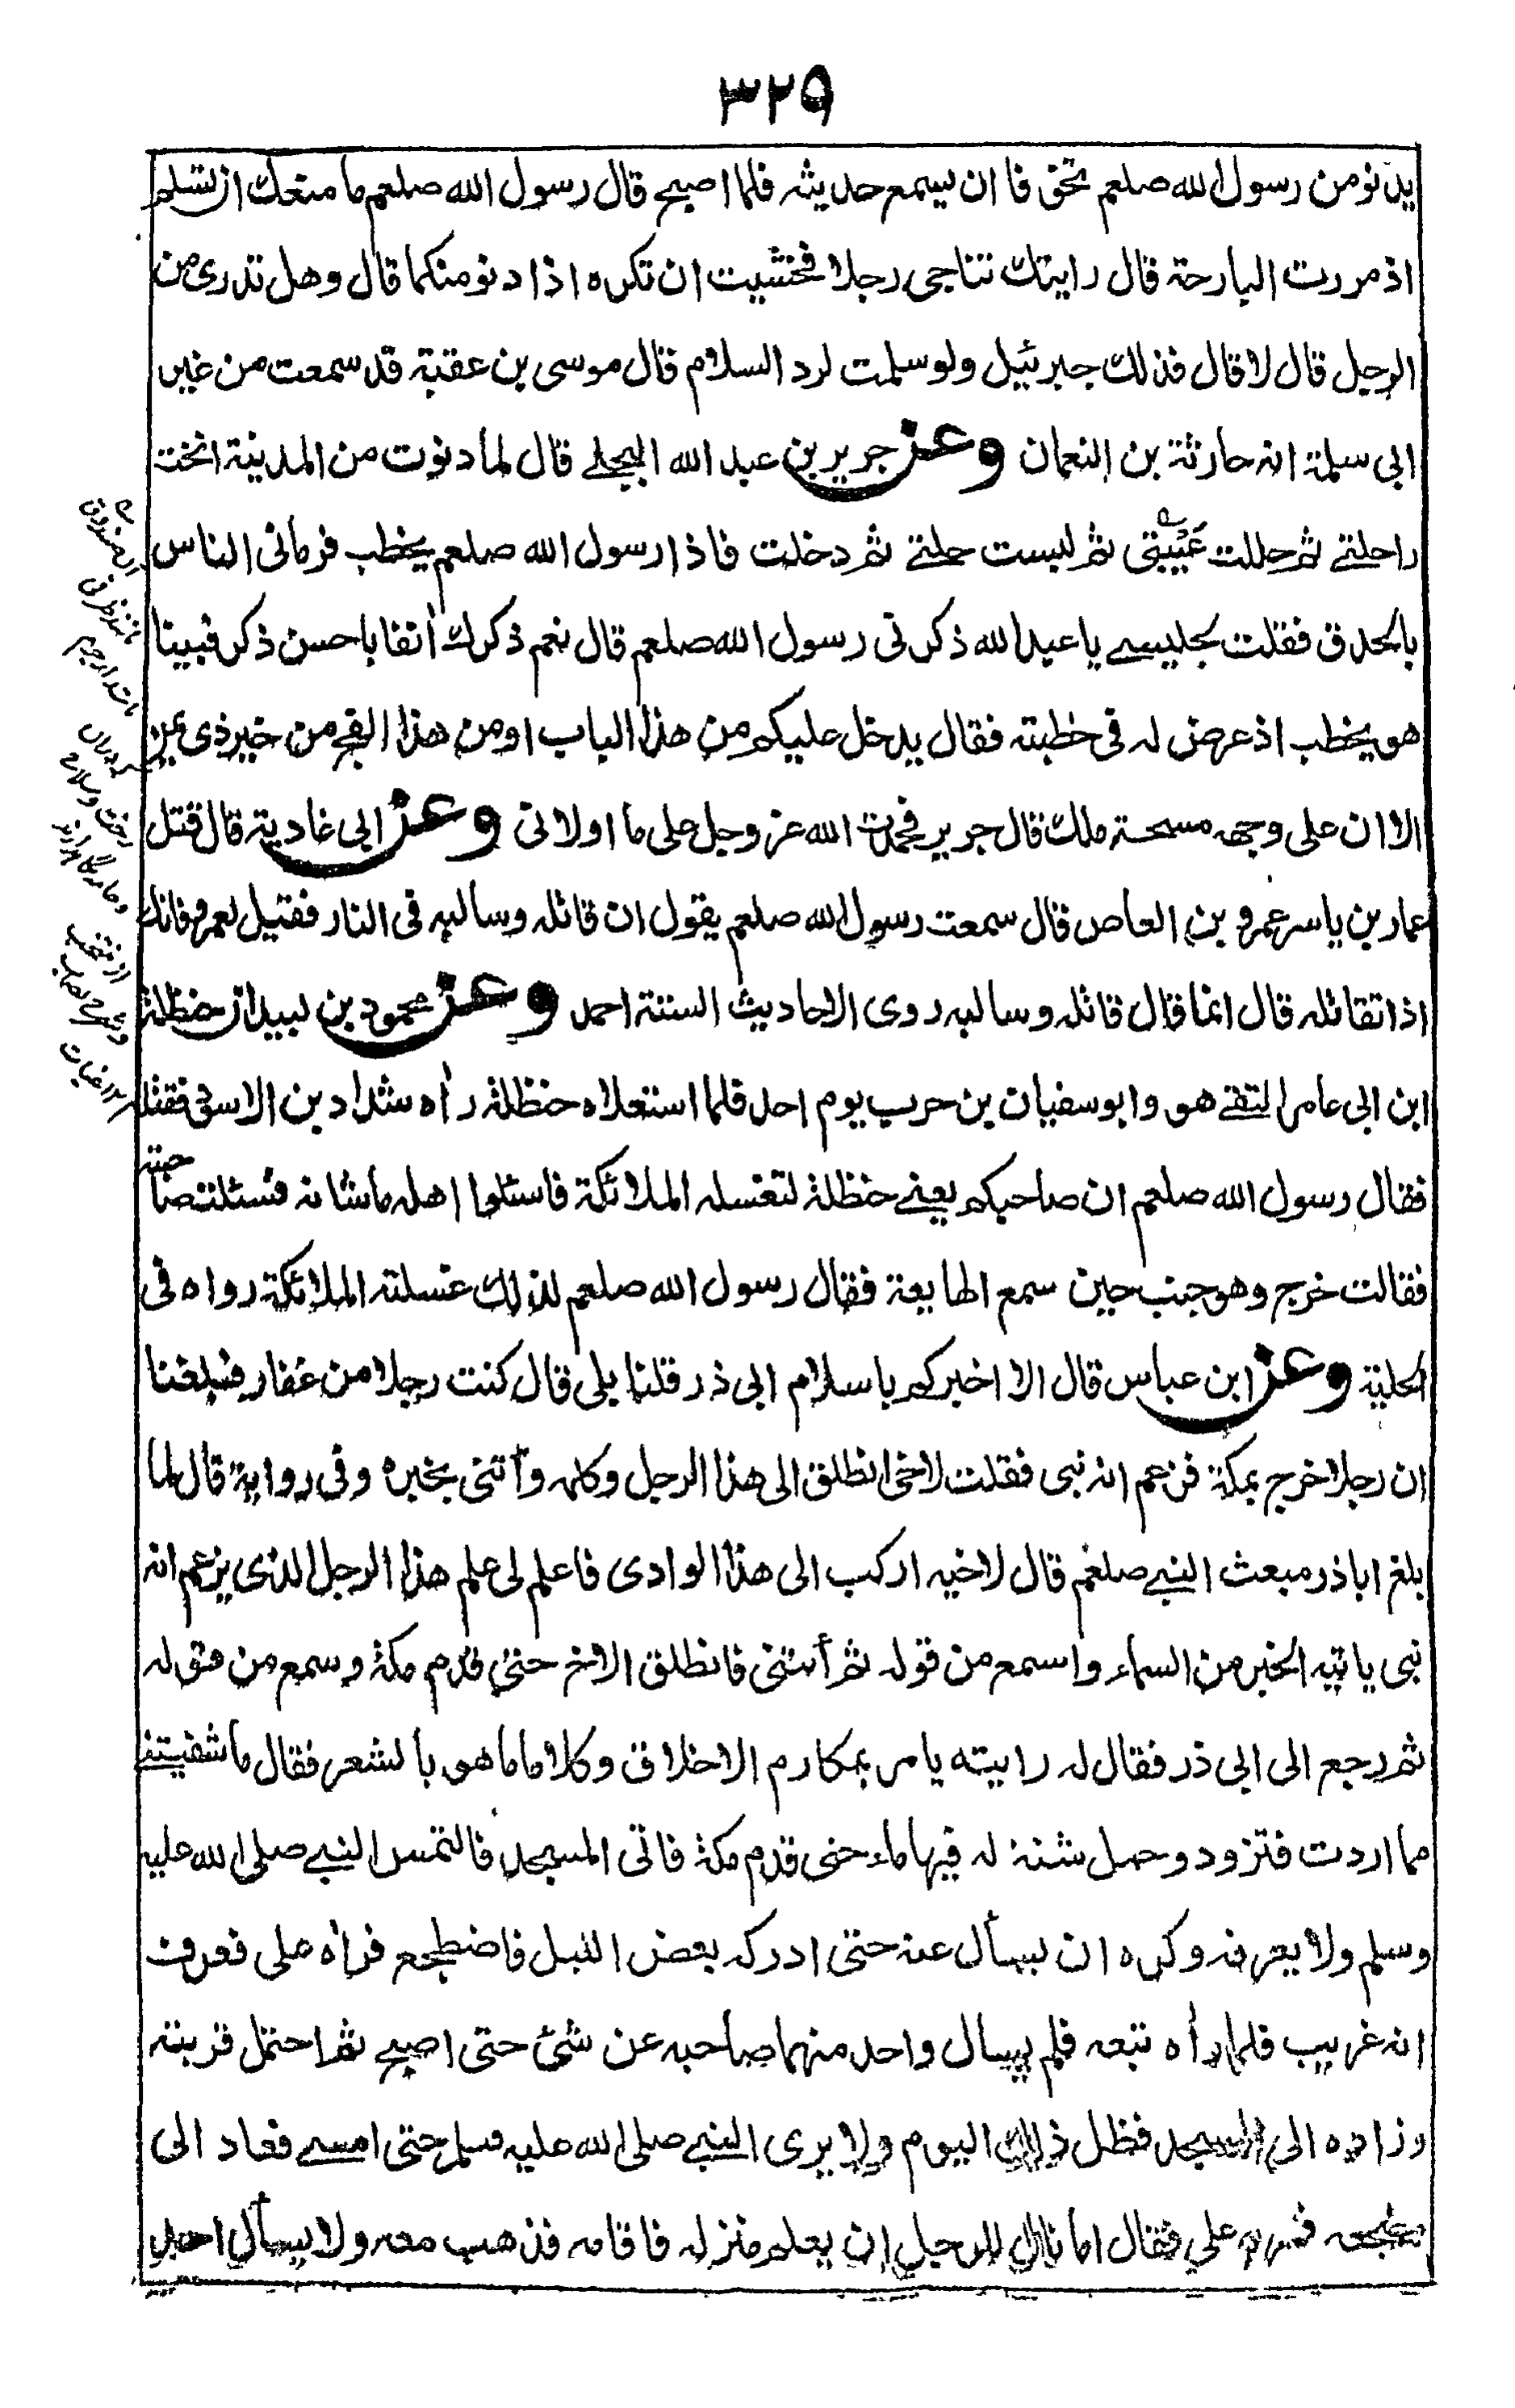 ٣٢٩
يدنو من رسول الله صلعم تخوفا ان يسمع حديثه فلما اصبح قال رسول الله صلعم ما منعك ان تسلم
اذ مررت البارحة قال رايتك تناجى رجلا فخشيت ان تكره اذا دنو منكما قال وهل تدرى من
الرجل قال لا قال فذلك جبرئيل ولو سلمت لرد السلام قال موسى بن عقبة قد سمعت من غير
ابى سلمة انه حارثة بن النعمان وعن جرير بن عبد الله البجلے قال لما دنوت من المدينة انخت
راحلتے ثم حللت عيبتى ثم لبست حلتے ثم دخلت فاذا رسول الله صلعم يخطب فرمانى الناس
بالحدق فقلت لجليسے يا عبد الله ذكرنى رسول الله صلعم قال نعم ذكرك اٰنفا باحسن ذكر فبينا
هو يخطب اذ عرض له فى خطبته فقال يدخل عليكم من هذا الباب او من هذا الفج من خير ذى يمن
الا ان على وجهه مسحة ملك قال جرير فحمدت الله عز وجل على ما اولانى وعن ابى غادية قال قتل
عمار بن ياسر عمرو بن العاص قال سمعت رسول الله صلعم يقول ان قاتله وسالبه فى النار فقيل لعمرو فانك
اذا تقاتله قال انما قال قاتله وسالبه روى الاحاديث الستة احمد وعن محمود بن لبيد ان حنظلة
ابن ابى عامر التقے هو وابو سفيان بن حرب يوم احد فلما استعلاه حنظلة راٰه شداد بن الاسود فقتله
فقال رسول الله صلعم ان صاحبكم يعنے حنظلة لتغسله الملائكة فاسئلوا اهله ما شانه فسئلت صاحبته
فقالت خرج وهو جنب حين سمع الهايعة فقال رسول الله صلعم لذلك غسلته الملائكة رواه فى
الحلية وعن ابن عباس قال الا اخبركم باسلام ابى ذر قلنا بلى قال كنت رجلا من غفار فبلغنا
ان رجلا خرج بمكة فزعم انه نبى فقلت لاخى انطلق الى هذا الرجل وكلمه وأتنى بخبره وفى رواية قال لما
بلغ اباذر مبعث النبے صلعم قال لاخيه اركب الى هذا الوادى فاعلم لى علم هذا الرجل الذى يزعم انه
نبى ياتيه الخبر من السماء واسمع من قوله ثم أتنى فانطلق الاخ حتى قدم مكة وسمع من قوله
ثم رجع الى ابى ذر فقال له رايته يامر بمكارم الاخلاق وكلاما ما هو بالشعر فقال ما شفيتنے
مما اردت فتزود وحمل شنة له فيها ماء حتى قدم مكة فاتى المسجد فالتمس النبے صلى الله عليه
وسلم ولا يعرفه وكره ان يسأل عنه حتى ادركه بعض الليل فاضطجع فراٰه على فعرف
انه غريب فلما رأه تبعه فلم يسال واحد منهما صاحبه عن شئ حتى اصبح ثم احتمل قربته
وزاده الى المسجد فظل ذلك اليوم ولا يرى النبے صلى الله عليه وسلم حتى امسے فعاد الى
مضجعه فمر به على فقال اما نال للرجل ان يعلم منزله فاقامه فذهب معه ولا يسأل احد